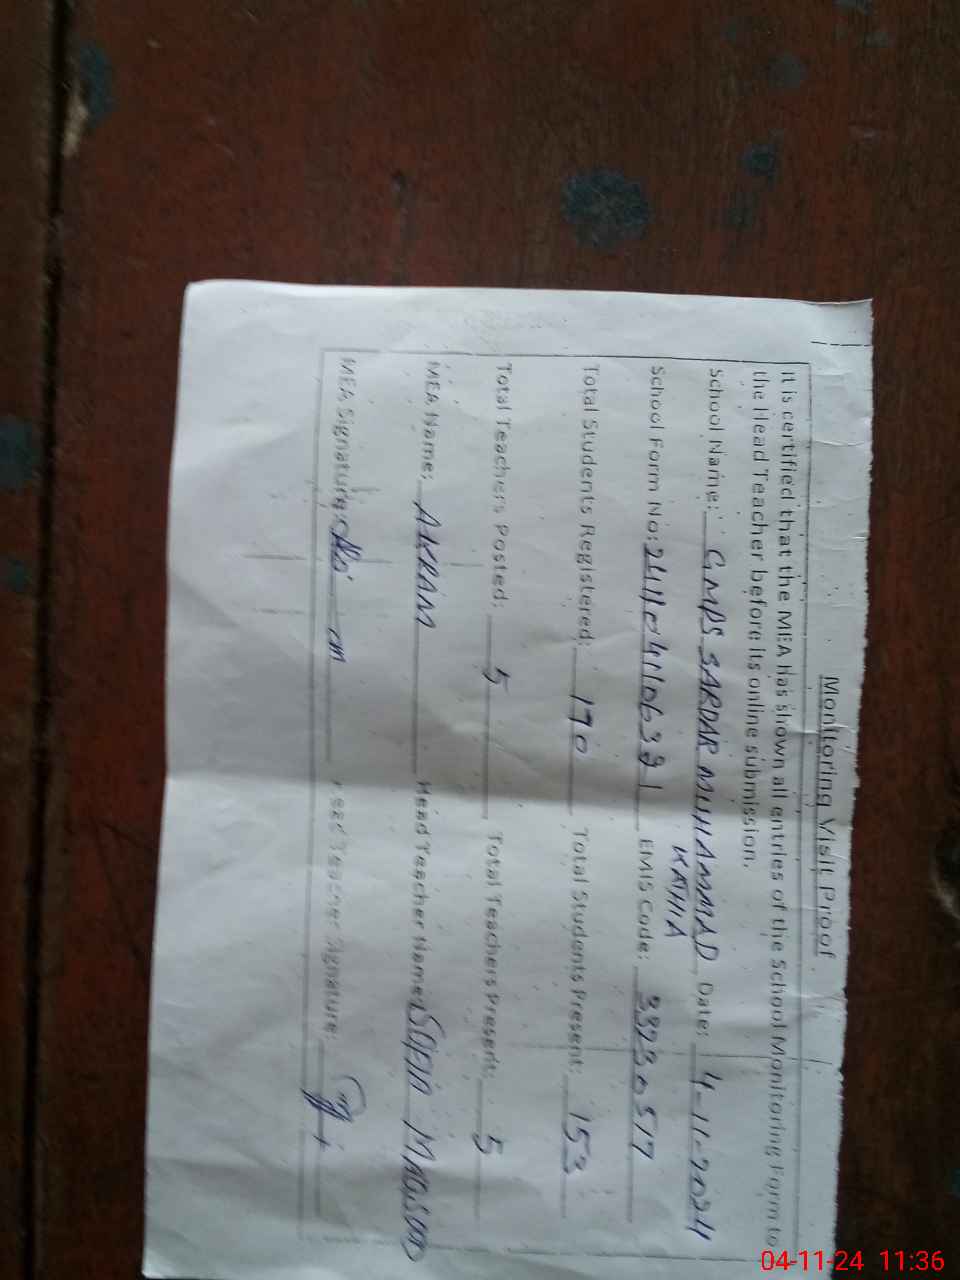 Monitoring Visit Proof
It is certified that the MEA has shown all entries of the School Monitoring Form to
the Head Teacher before its online submission.
School Name: GMPS SARDAR MUHAMMAD Date: 4-11-2024
KATHIA
School Form No: EMIS Code:
Total Students Registered: 170 Total Students Present: 153
Total Teachers Posted: 5 Total Teachers Present: 5
MEA Name: AKRAM Head Teacher Name: SOFIA MAQSOOD
MEA Signature: Head Teacher Signature:
04-11-24 11:36